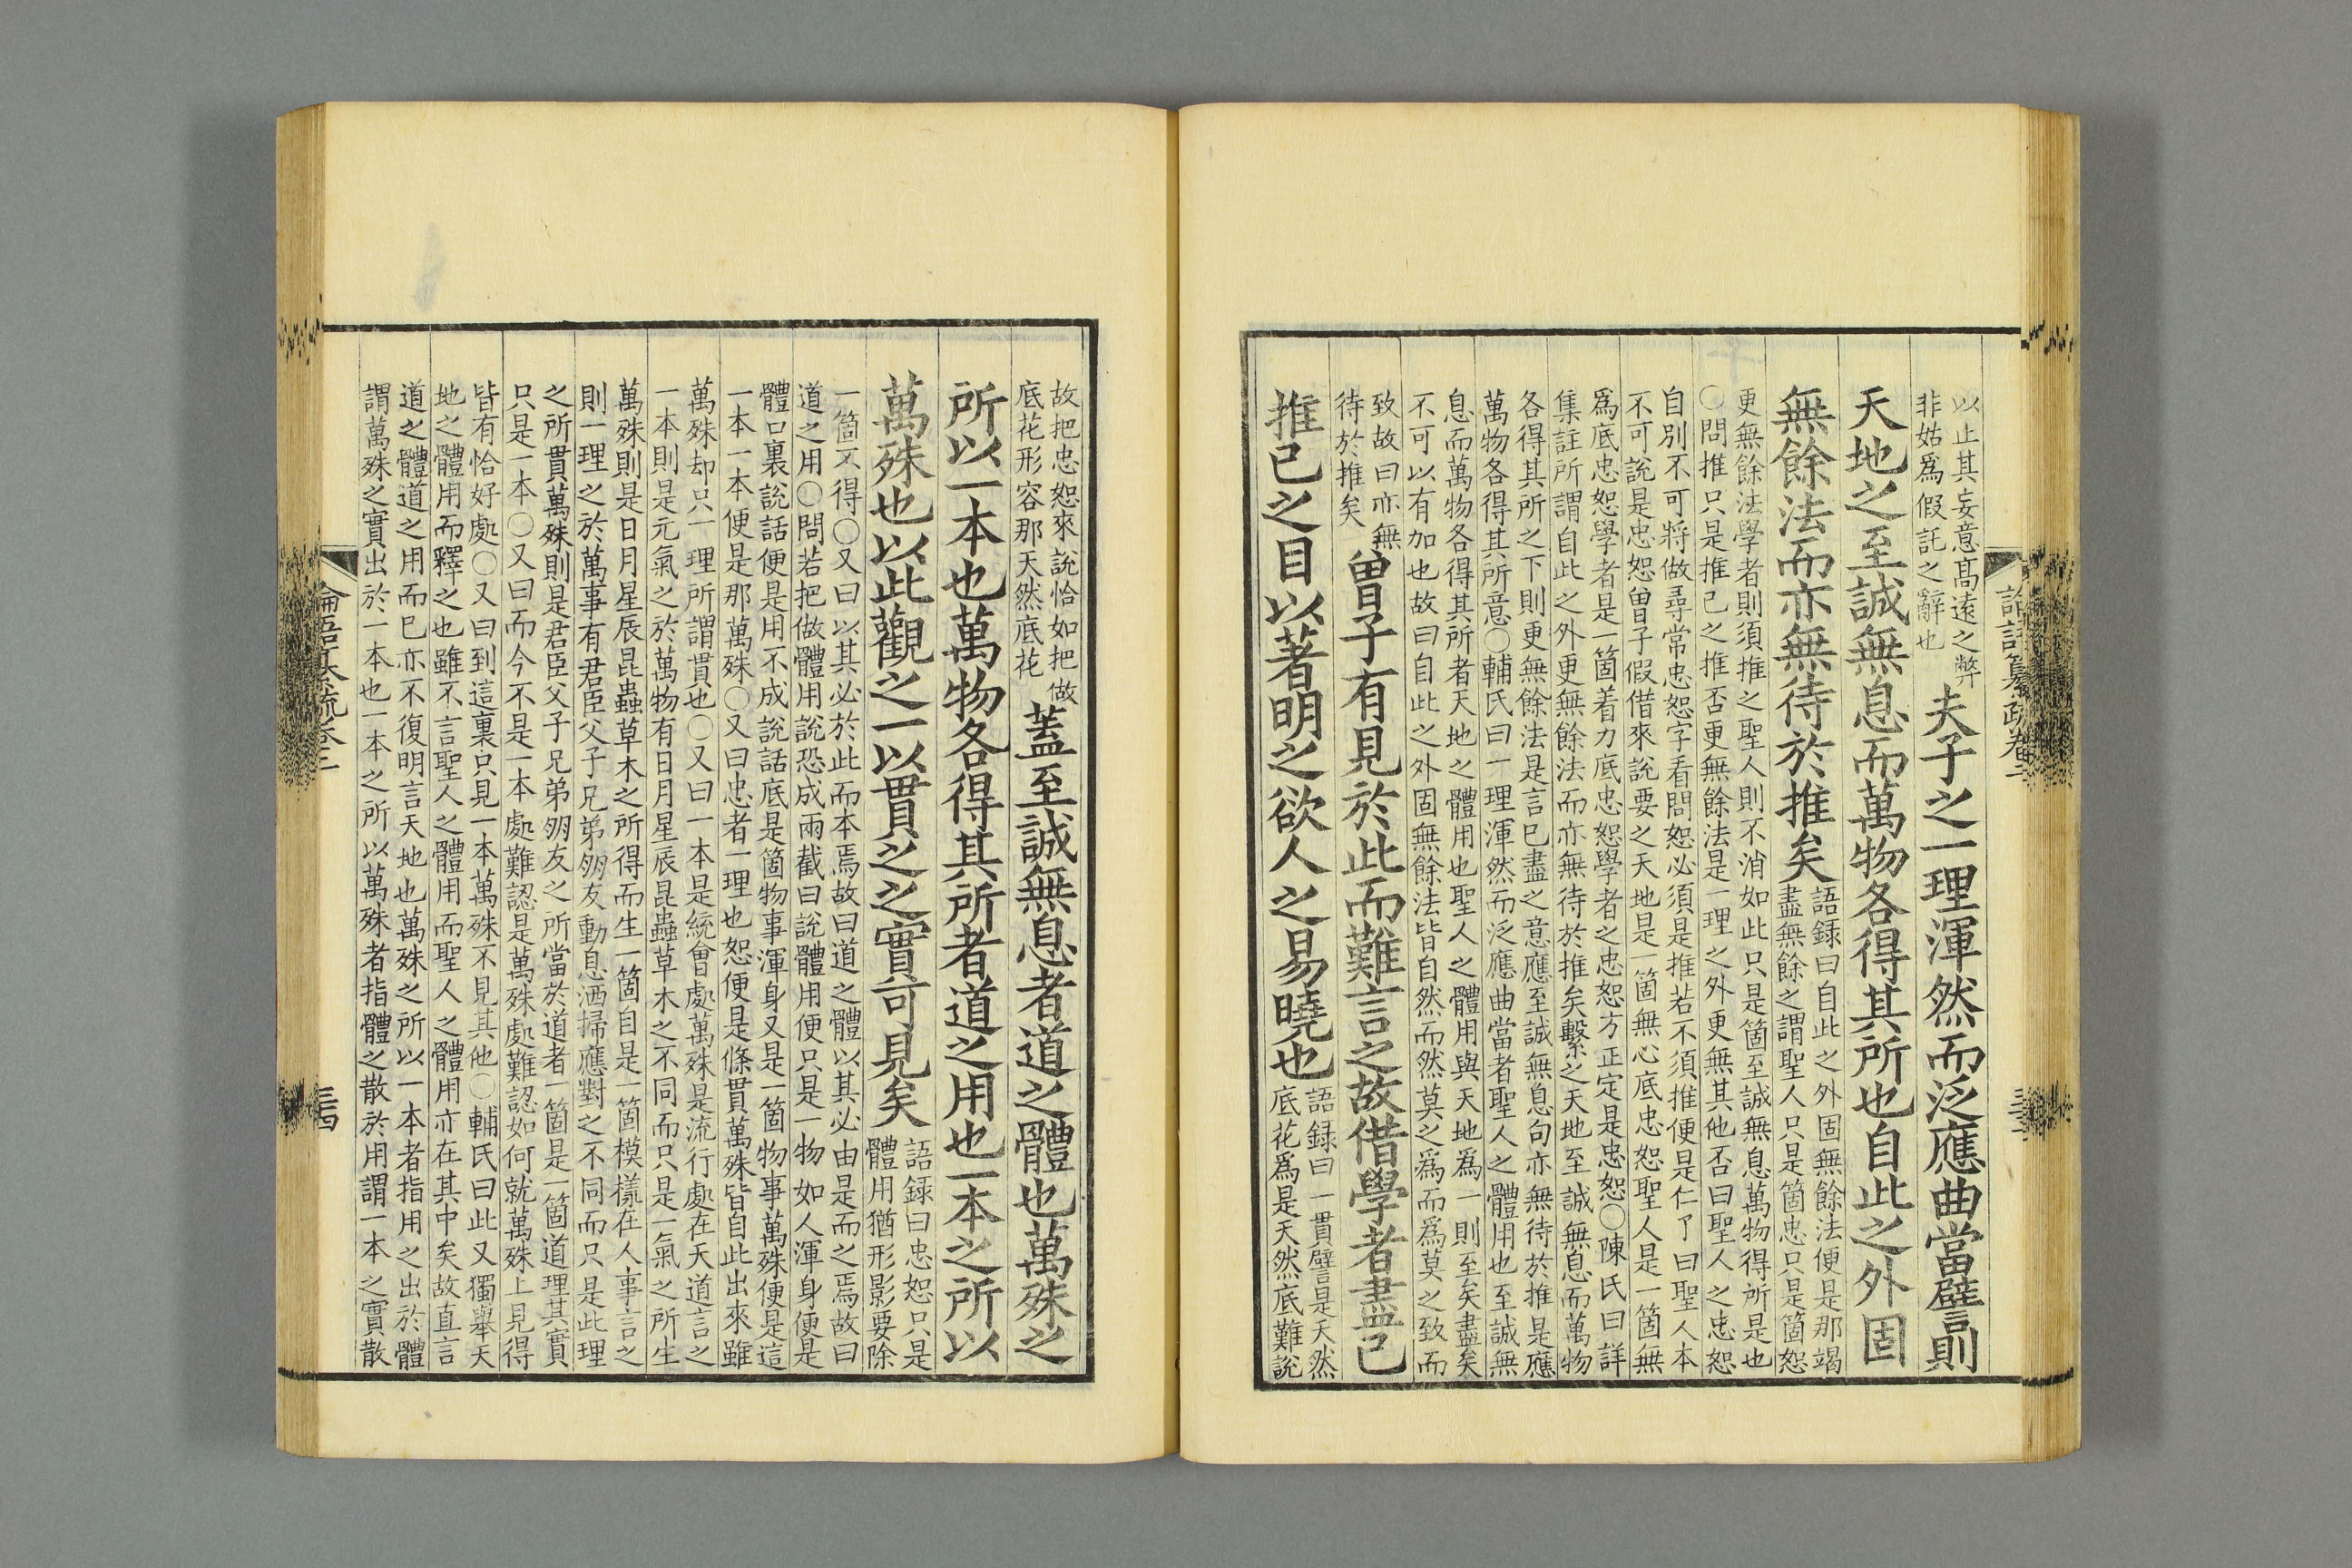 論語纂疏卷二
以止其妄意髙遠之弊
非姑爲假託之辭也
夫子之一理渾然而泛應曲當譬則
天地之至誠無息而萬物各得其所也自此之外固
無餘法而亦無待於推矣
語録曰自此之外固無餘法便是那竭
盡無餘之謂聖人只是箇忠只是箇恕
更無餘法學者則須推之聖人則不消如此只是箇至誠無息萬物得所是也
○問推只是推已之推否更無餘法是一理之外更無其他否曰聖人之忠恕
自別不可將做尋常忠恕字看問恕必須是推若不須推便是仁了曰聖人本
不可說是忠恕曽子假借來說要之天地是一箇無心底忠恕聖人是一箇無
爲底忠恕學者是一箇着力底忠恕學者之忠恕方正定是忠恕○陳氏曰詳
集註所謂自此之外更無餘法而亦無待於推矣繫之天地至誠無息而萬物
各得其所之下則更無餘法是言已盡之意應至誠無息句亦無待於推是應
萬物各得其所意○輔氏曰一理渾然而泛應曲當者聖人之體用也至誠無
息而萬物各得其所者天地之體用也聖人之體用與天地爲一則至矣盡矣
不可以有加也故曰自此之外固無餘法皆自然而然莫之爲而爲莫之致而
致故曰亦無
待於推矣
曽子有見於此而難言之故借學者盡已
推已之目以著明之欲人之易曉也
語録曰一貫譬是天然
底花爲是天然底難說
故把忠恕來說恰如把做
底花形容那天然底花
葢至誠無息者道之體也萬殊之
所以一本也萬物各得其所者道之用也一本之所以
萬殊也以此觀之一以貫之之實可見矣
語録曰忠恕只是
體用猶形影要除
一箇不得○又曰以其必於此而本焉故曰道之體以其必由是而之焉故曰
道之用○問若把做體用說恐成兩截曰說體用便只是一物如人渾身便是
體口裏說話便是用不成說話底是箇物事渾身又是一箇物事萬殊便是這
一本一本便是那萬殊○又曰忠者一理也恕便是條貫萬殊皆自此出來雖
萬殊却只一理所謂貫也○又曰一本是統會處萬殊是流行處在天道言之
一本則是元氣之於萬物有日月星辰昆蟲草木之不同而只是一氣之所生
萬殊則是日月星辰昆蟲草木之所得而生一箇自是一箇模樣在人事言之
則一理之於萬事有君臣父子兄弟朋友動息洒掃應對之不同而只是此理
之所貫萬殊則是君臣父子兄弟朋友之所當於道者一箇是一箇道理其實
只是一本○又曰而今不是一本處難認是萬殊處難認如何就萬殊上見得
皆有恰好處○又曰到這裏只見一本萬殊不見其他○輔氏曰此又獨舉天
地之體用而釋之也雖不言聖人之體用而聖人之體用亦在其中矣故直言
道之體道之用而已亦不復明言天地也萬殊之所以一本者指用之出於體
謂萬殊之實出於一本也一本之所以萬殊者指體之散於用謂一本之實散
論語纂疏卷二
三四